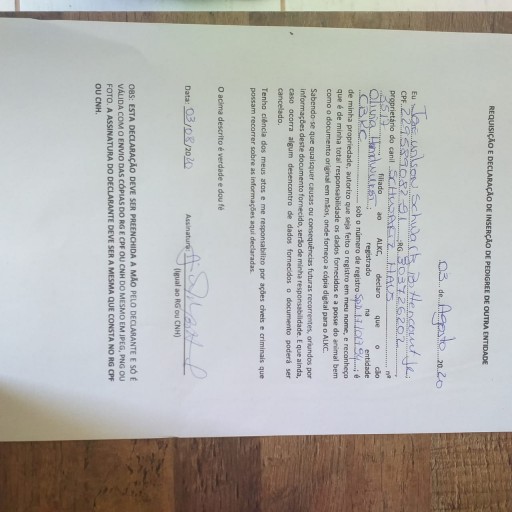 REQUISIÇÃO E DECLARAÇÃO DE INSERÇÃO DE PEDIGREE DE OUTRA ENTIDADE
03 de Agosto 2020
Eu
CPF RG
proprietário do canil nº
filiado ao ALKC, declaro que o cão
registrado na entidade
CBKC sob o número de registro é
de minha propriedade, autorizo que seja feito o registro em meu nome, e reconheço
que é de minha total responsabilidade os dados fornecidos e a posse do animal bem
como o documento original em mãos, onde forneço a cópia digital para o ALKC.
Sabendo-se que quaisquer causas ou consequências futuras recorrentes, oriundos por
informações deste documento fornecido, serão de minha responsabilidade. E que ainda,
caso ocorra algum desencontro de dados fornecidos o documento poderá ser
cancelado.
Tenho ciência dos meus atos e me responsabilizo por ações cíveis e criminais que
possam recorrer sobre as informações aqui declaradas.
O acima descrito é verdade e dou fé
Data: 03/08/2020 Assinatura
(Igual ao RG ou CNH)
OBS: ESTA DECLARAÇÃO DEVE SER PREENCHIDA À MÃO PELO DECLARANTE E SÓ É
VÁLIDA COM O ENVIO DAS CÓPIAS DO RG E CPF OU CNH DO MESMO EM JPEG, PNG OU
FOTO. A ASSINATURA DO DECLARANTE DEVE SER A MESMA QUE CONSTA NO RG CPF
OU CNH.